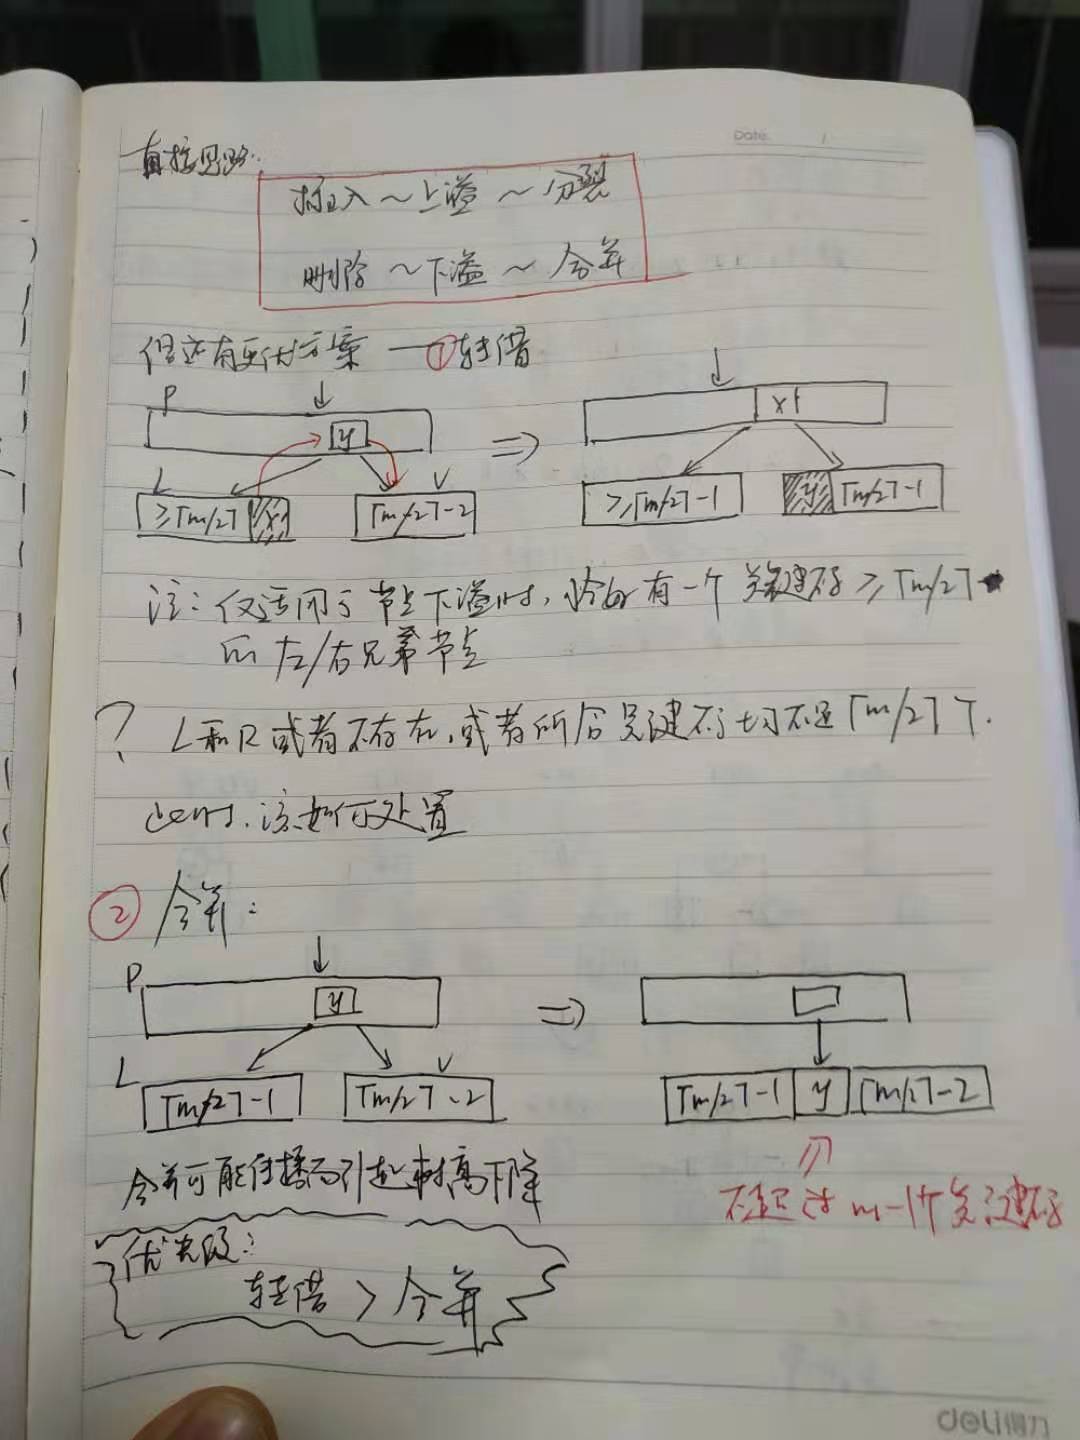 Date.
直接思路:
插入～上溢～分裂
删除～下溢～合并
但还有更优方案 ——①转借
P
y
x
L
V
≥⌈m/2⌉ x
⌈m/2⌉-2
⇒
≥⌈m/2⌉-1
y ⌈m/2⌉-1
注: 仅适用于节点下溢时, 恰好有一个关键码≥⌈m/2⌉
的左/右兄弟节点
? L和R或者不存在, 或者所含关键码均不足⌈m/2⌉个.
此时, 该如何处置
② 合并:
P
y
⇒
L
V
⌈m/2⌉-1
⌈m/2⌉-2
⌈m/2⌉-1 y ⌈m/2⌉-2
合并可能传播而引起树高下降
不超过m-1个关键码
优先级:
转借 > 合并
deli得力